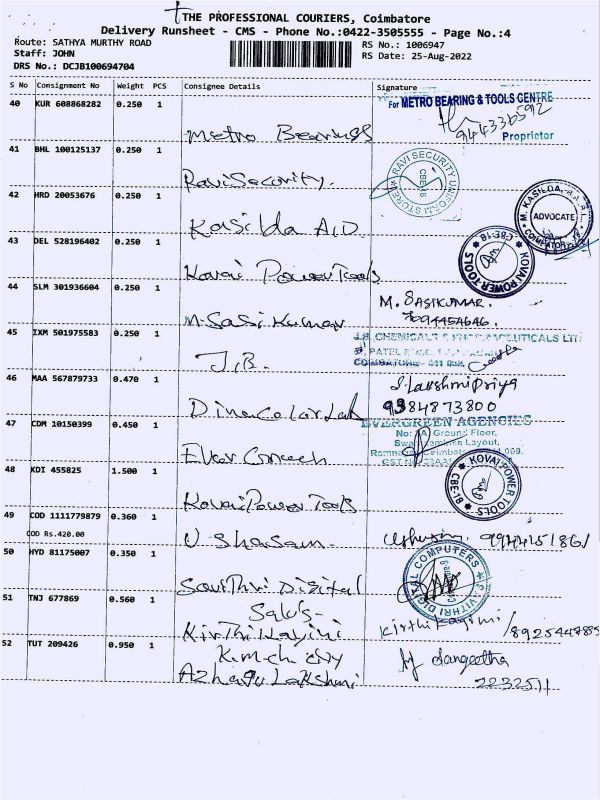 THE PROFESSIONAL COURIERS, Coimbatore
Delivery Runsheet - CMS - Phone No.:0422-3505555 - Page No.:4
Route: SATHYA MURTHY ROAD
RS No.: 1006947
Staff: JOHN
RS Date: 25-Aug-2022
DRS No.: DCJB100694704
S No Consignment No Weight PCS Consignee Details Signature
40 KUR 608868282 0.250 1
For METRO BEARING & TOOLS CENTRE
944336592
Proprietor
Metro Bearings
41 BHL 100125137 0.250 1
RAVI SECURITY UNIFORM STORES
Ravi Security.
42 HRD 20053676 0.250 1
M. KASILDA, ADVOCATE COIMBATORE
Kasilda A,D
43 DEL 528196402 0.250 1
KOVAI POWER TOOLS CBE-18
Kovai Power Tools
44 SLM 301936604 0.250 1
M. SASIKUMAR.
M. Sasi Kumar
45 IXM 501975583 0.250 1
J.B. CHEMICALS
PATEL
COIMBATORE
J.B.
46 MAA 567879733 0.470 1
S. Lakshmi Priya
9384873800
Dina Color Lab
47 CDM 10150399 0.450 1
EVERGREEN AGENCIES
No: Ground Floor,
Layout,
Ever Green
48 KDI 455825 1.500 1
KOVAI POWER TOOLS CBE-18
Kovai Power Tools
49 COD 1111779879 0.360 1
COD Rs.420.00
U Sha
9944151861
50 HYD 81175007 0.350 1
SAVITHRI DIGITAL COMPUTERS
Savithri Digital
Sales
51 TNJ 677869 0.560 1
Kirthikayini
Kirthikayini /8925447855
52 TUT 209426 0.950 1
Sangeetha
2232511
Azhagu Lakshmi